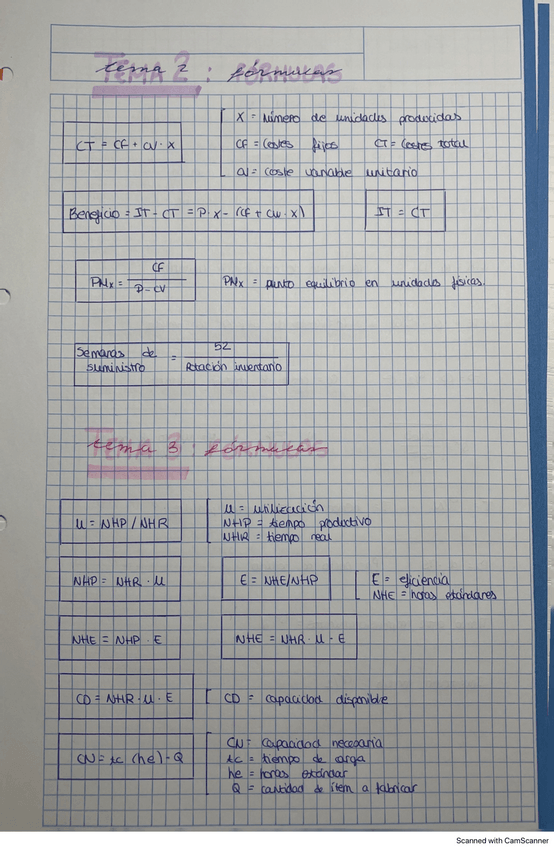 tema 2 : fórmulas
CT = CF + CV · X
X = Número de unidades producidas
CF = Costes fijos CT = Costes total
CV = coste variable unitario
Beneficio = IT - CT = P · X - (CF + CVU · X)
IT = CT
PNx = CF / P - CV
PNx = punto equilibrio en unidades físicas.
Semanas de suministro = 52 / Rotación inventario
tema 3 : fórmulas
U = NHP / NHR
U = utilización
NHP = tiempo productivo
NHR = tiempo real
NHP = NHR · U
E = NHE/NHP
E = eficiencia
NHE = horas estándares
NHE = NHP · E
NHE = NHR · U · E
CD = NHR · U · E
CD = capacidad disponible
CN = tc (he) · Q
CN = Capacidad necesaria
tc = tiempo de carga
he = horas estándar
Q = cantidad de ítem a fabricar
Scanned with CamScanner